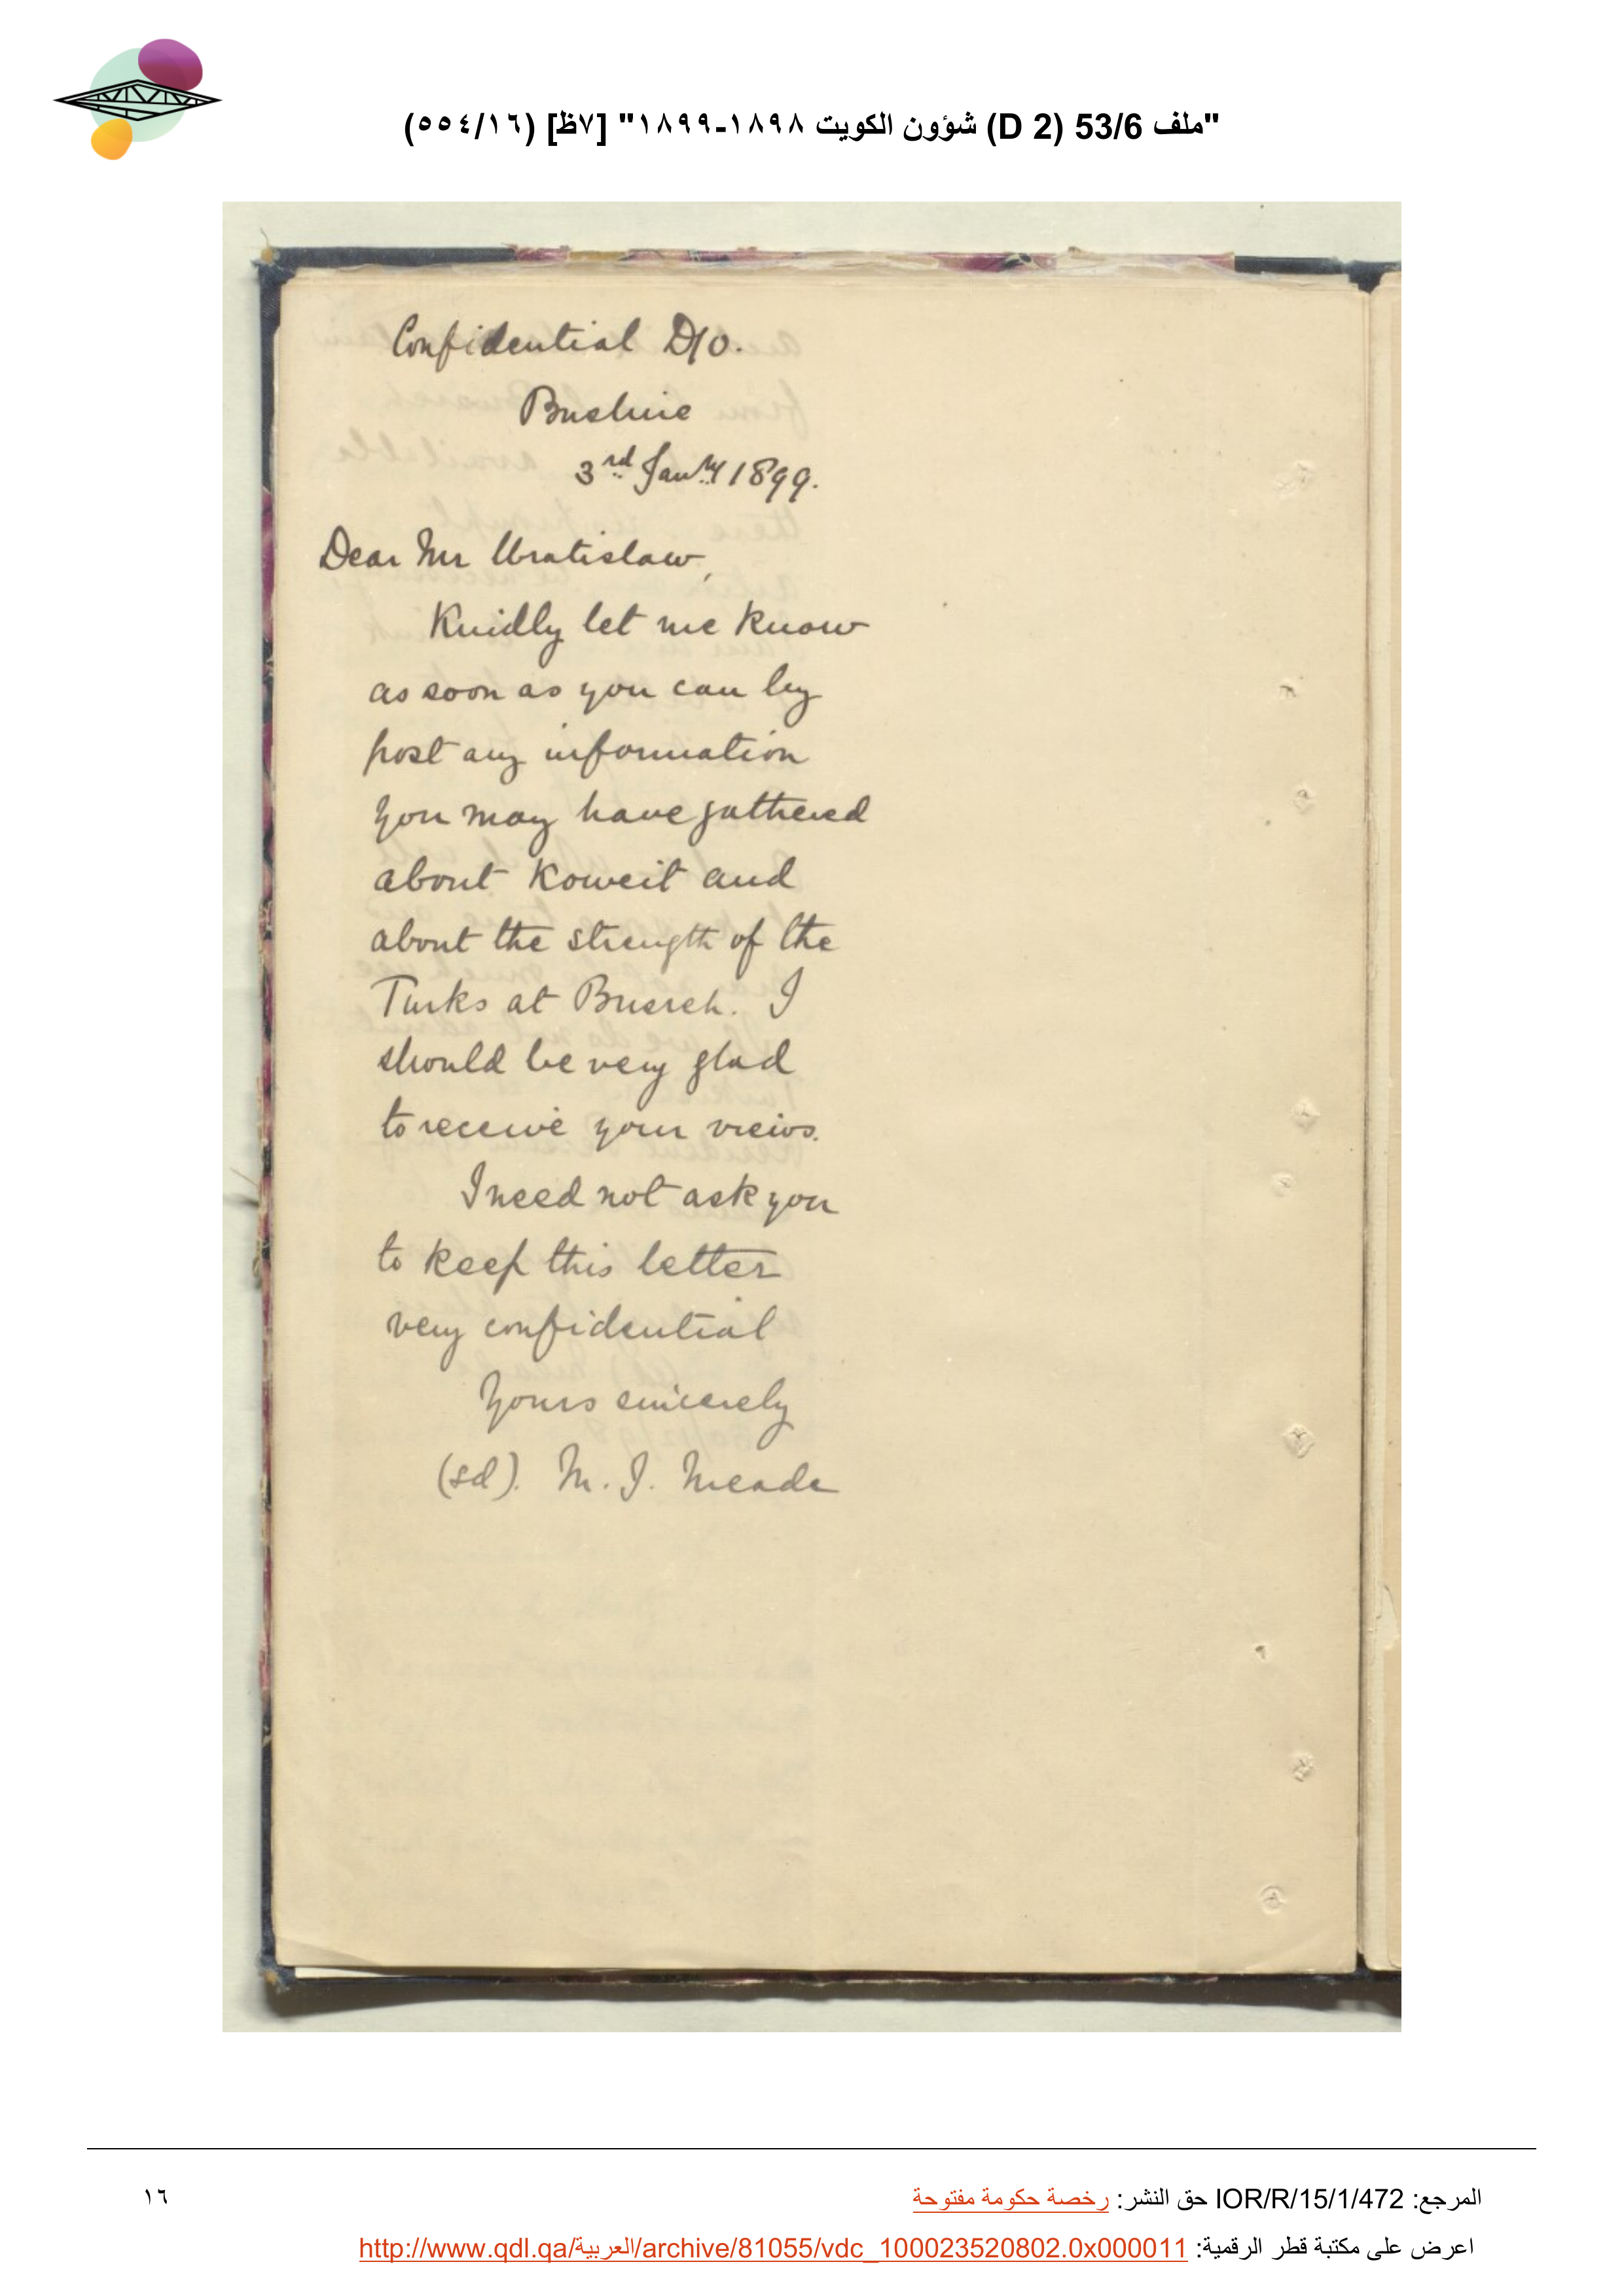 "ملف 53/6 (D 2) شؤون الكويت ١٨٩٨-١٨٩٩" [٧ظ] (٥٥٤/١٦)
Confidential D/O.
Bushire
3rd Jany 1899.
Dear Mr Wratislaw,
Kindly let me know
as soon as you can by
post any information
you may have gathered
about Koweit and
about the strength of the
Turks at Busreh. I
should be very glad
to receive your views.
I need not ask you
to keep this letter
very confidential
Yours sincerely
(sd). M. J. Meade
المرجع: IOR/R/15/1/472 حق النشر: رخصة حكومة مفتوحة
١٦
اعرض على مكتبة قطر الرقمية: http://www.qdl.qa/العربية/archive/81055/vdc_100023520802.0x000011